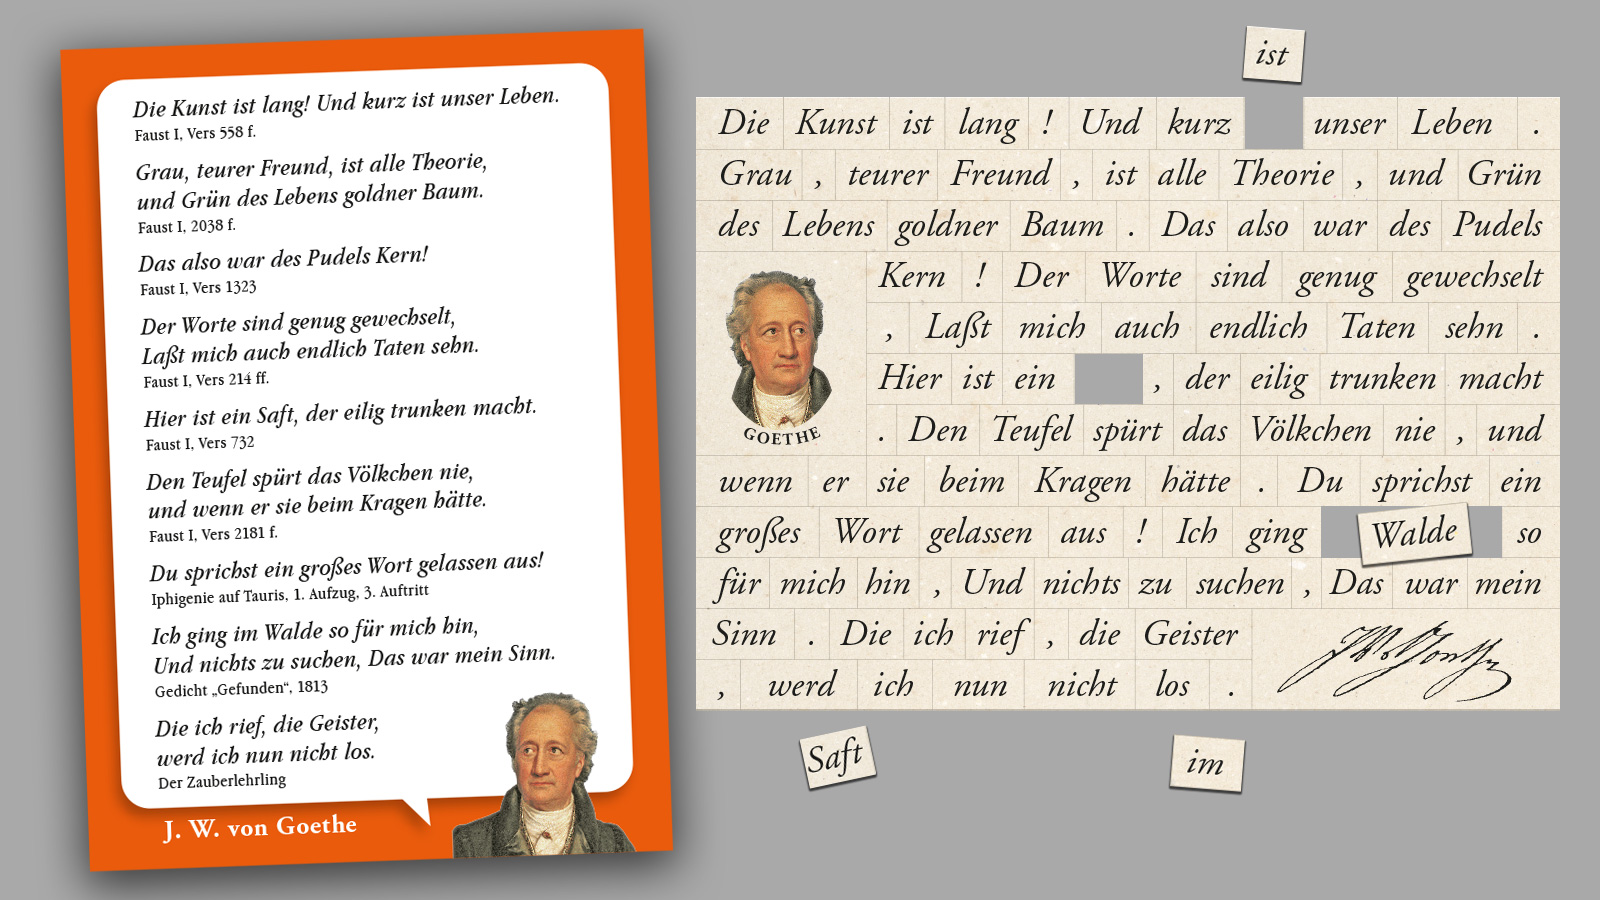 Die Kunst ist lang! Und kurz ist unser Leben.
Faust I, Vers 558 f.
Grau, teurer Freund, ist alle Theorie,
und Grün des Lebens goldner Baum.
Faust I, 2038 f.
Das also war des Pudels Kern!
Faust I, Vers 1323
Der Worte sind genug gewechselt,
Laßt mich auch endlich Taten sehn.
Faust I, Vers 214 ff.
Hier ist ein Saft, der eilig trunken macht.
Faust I, Vers 732
Den Teufel spürt das Völkchen nie,
und wenn er sie beim Kragen hätte.
Faust I, Vers 2181 f.
Du sprichst ein großes Wort gelassen aus!
Iphigenie auf Tauris, 1. Aufzug, 3. Auftritt
Ich ging im Walde so für mich hin,
Und nichts zu suchen, Das war mein Sinn.
Gedicht „Gefunden“, 1813
Die ich rief, die Geister,
werd ich nun nicht los.
Der Zauberlehrling
J. W. von Goethe
ist
Die Kunst ist lang ! Und kurz unser Leben .
Grau , teurer Freund , ist alle Theorie , und Grün
des Lebens goldner Baum . Das also war des Pudels
Kern ! Der Worte sind genug gewechselt
, Laßt mich auch endlich Taten sehn .
Hier ist ein , der eilig trunken macht
. Den Teufel spürt das Völkchen nie , und
GOETHE
wenn er sie beim Kragen hätte . Du sprichst ein
großes Wort gelassen aus ! Ich ging Walde so
für mich hin , Und nichts zu suchen , Das war mein
Sinn . Die ich rief , die Geister
, werd ich nun nicht los .
Saft
im